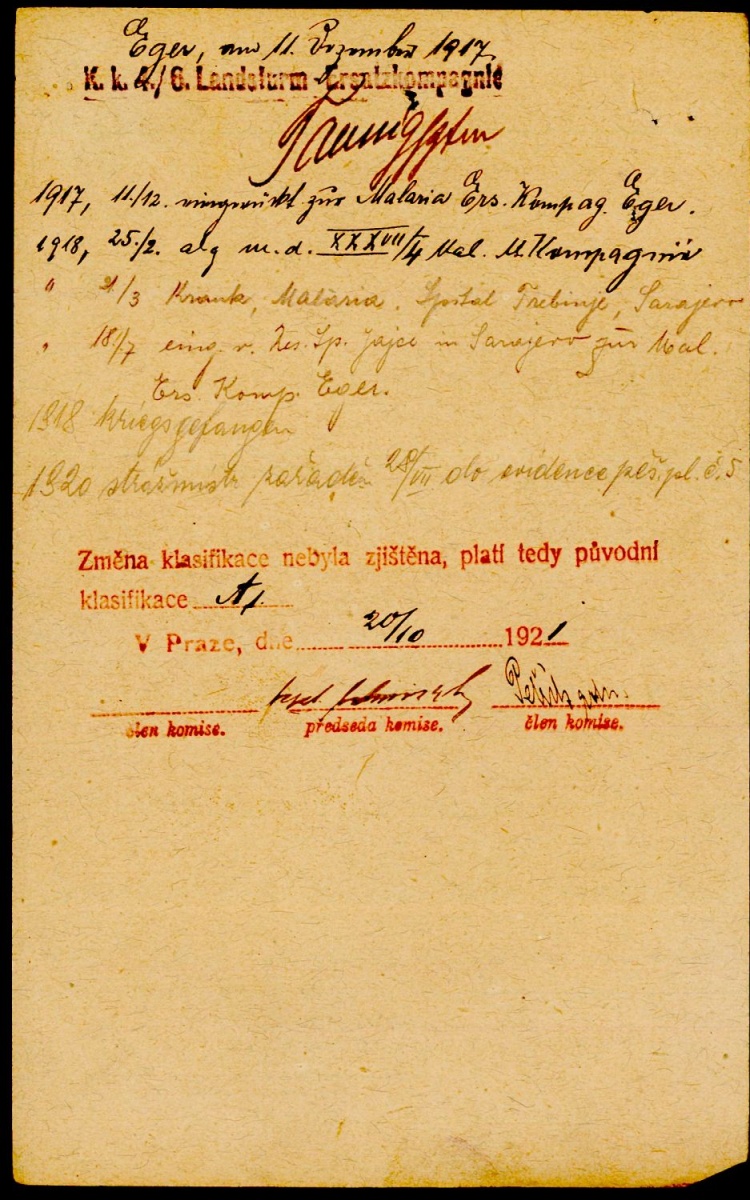 Eger, am 11. Dezember 1917
K. k. 4./6. Landsturm-Ersatzkompagnie
1917, 11./12. eingerückt zur Malaria Ers. Kompag. Eger.
1918, 25./2. alg m. d. XXXVII/4 Mal. M. Kompagnie
" 2/3 Krank, Malaria. Spital Trebinje, Sarajevo
" 18./7 eing. v. Res. Sp. Jajce in Sarajevo zur Mal.
Ers. Komp. Eger.
1918 kriegsgefangen
1920 strážmistr zařaděn 28/VII do evidence pěš. pl. č. 5
Změna klasifikace nebyla zjištěna, platí tedy původní
klasifikace A1.
V Praze, dne 20/10 1921
člen komise. předseda komise. člen komise.